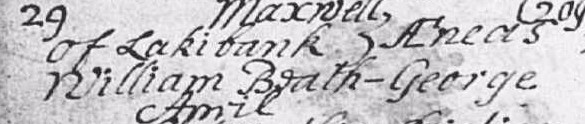 29 Maxwell, (209
of Lakibank } Æneas
William Beath-George
April